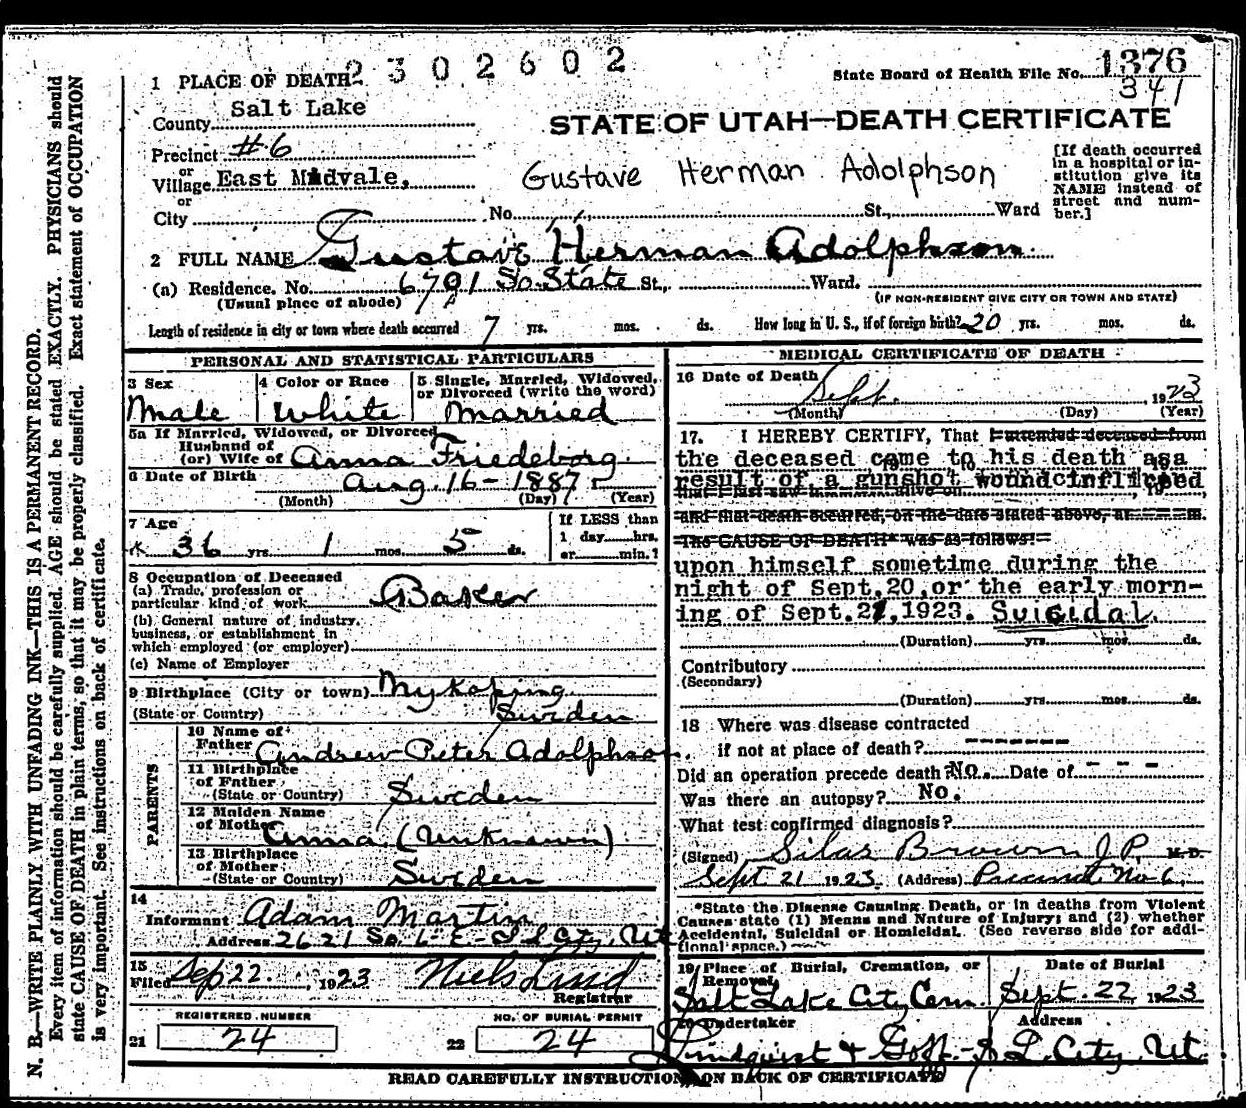 2302602
State Board of Health File No. 1376
341
1 PLACE OF DEATH
County Salt Lake
STATE OF UTAH—DEATH CERTIFICATE
Precinct #6
or
Village East Midvale,
or
City No. St., Ward
Gustave Herman Adolphson
[If death occurred in a hospital or institution give its NAME instead of street and number.]
2 FULL NAME Gustave Herman Adolphson
(a) Residence. No. 6791 So. State St., Ward.
(Usual place of abode) (IF NON-RESIDENT GIVE CITY OR TOWN AND STATE)
Length of residence in city or town where death occurred 7 yrs. mos. ds. How long in U. S., if of foreign birth? 20 yrs. mos. ds.
PERSONAL AND STATISTICAL PARTICULARS
3 Sex 4 Color or Race 5 Single, Married, Widowed, or Divorced (write the word)
Male White Married
5a If Married, Widowed, or Divorced
Husband of
(or) Wife of Anna Friedeborg
6 Date of Birth Aug. 16 - 1887
(Month) (Day) (Year)
7 Age If LESS than
36 yrs. 1 mos. 5 ds. 1 day......hrs. or......min.?
8 Occupation of Deceased
(a) Trade, profession or particular kind of work Baker
(b) General nature of industry, business, or establishment in which employed (or employer)
(c) Name of Employer
9 Birthplace (City or town) Nykoping
(State or Country) Sweden
PARENTS
10 Name of Father Andrew Peter Adolphson
11 Birthplace of Father (State or Country) Sweden
12 Maiden Name of Mother Anna (Unknown)
13 Birthplace of Mother (State or Country) Sweden
14
Informant Adam Martin
Address 2621 So. 6 E. - S L City, Ut
15
Filed Sep 22 1923 Niels Lind
Registrar
REGISTERED NUMBER NO. OF BURIAL PERMIT
21 24 22 24
MEDICAL CERTIFICATE OF DEATH
16 Date of Death Sept. 1923
(Month) (Day) (Year)
17. I HEREBY CERTIFY, That I attended deceased from
the deceased came to his death as a
result of a gunshot wound inflicted
that I last saw h alive on , 19
and that death occurred, on the date stated above, at m.
The CAUSE OF DEATH* was as follows:
upon himself sometime during the
night of Sept.20,or the early morn-
ing of Sept.21,1923. Suicidal.
(Duration) yrs. mos. ds.
Contributory
(Secondary)
(Duration) yrs. mos. ds.
18 Where was disease contracted
if not at place of death? -------
Did an operation precede death? No. Date of - - -
Was there an autopsy? No.
What test confirmed diagnosis?
(Signed) Silas Brown J.P. M.D.
Sept 21 1923 (Address) Precinct No 6,
*State the Disease Causing Death, or in deaths from Violent Causes state (1) Means and Nature of Injury; and (2) whether Accidental, Suicidal or Homicidal. (See reverse side for additional space.)
19 Place of Burial, Cremation, or Removal Date of Burial
Salt Lake City Cem. Sept. 22 1923
20 Undertaker Address
Lindquist & Goff - S. L. City, Ut.
READ CAREFULLY INSTRUCTIONS ON BACK OF CERTIFICATE
N. B.—WRITE PLAINLY WITH UNFADING INK—THIS IS A PERMANENT RECORD.
Every item of information should be carefully supplied. AGE should be stated EXACTLY. PHYSICIANS should
state CAUSE OF DEATH in plain terms, so that it may be properly classified. Exact statement of OCCUPATION
is very important. See instructions on back of certificate.